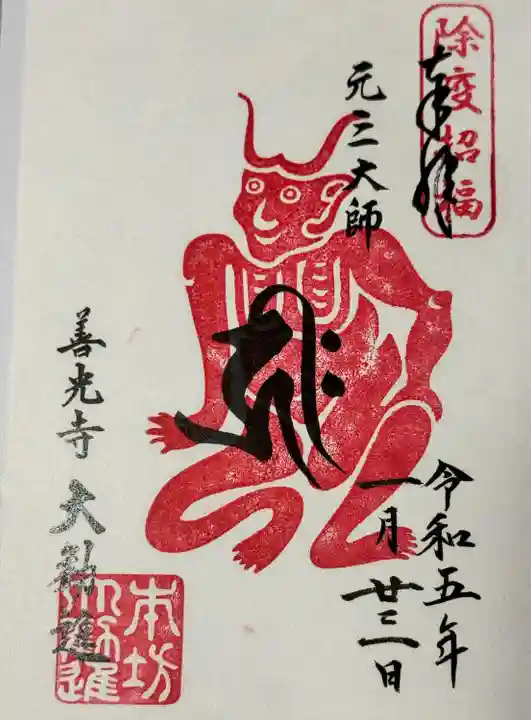 除疫招福
奉拝
元三大師
令和五年
一月廿三日
善光寺 大勧進
本坊
大勧進